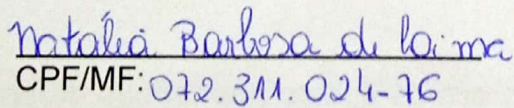 Natália Barbosa de Loima
CPF/MF: 072.311.024-76